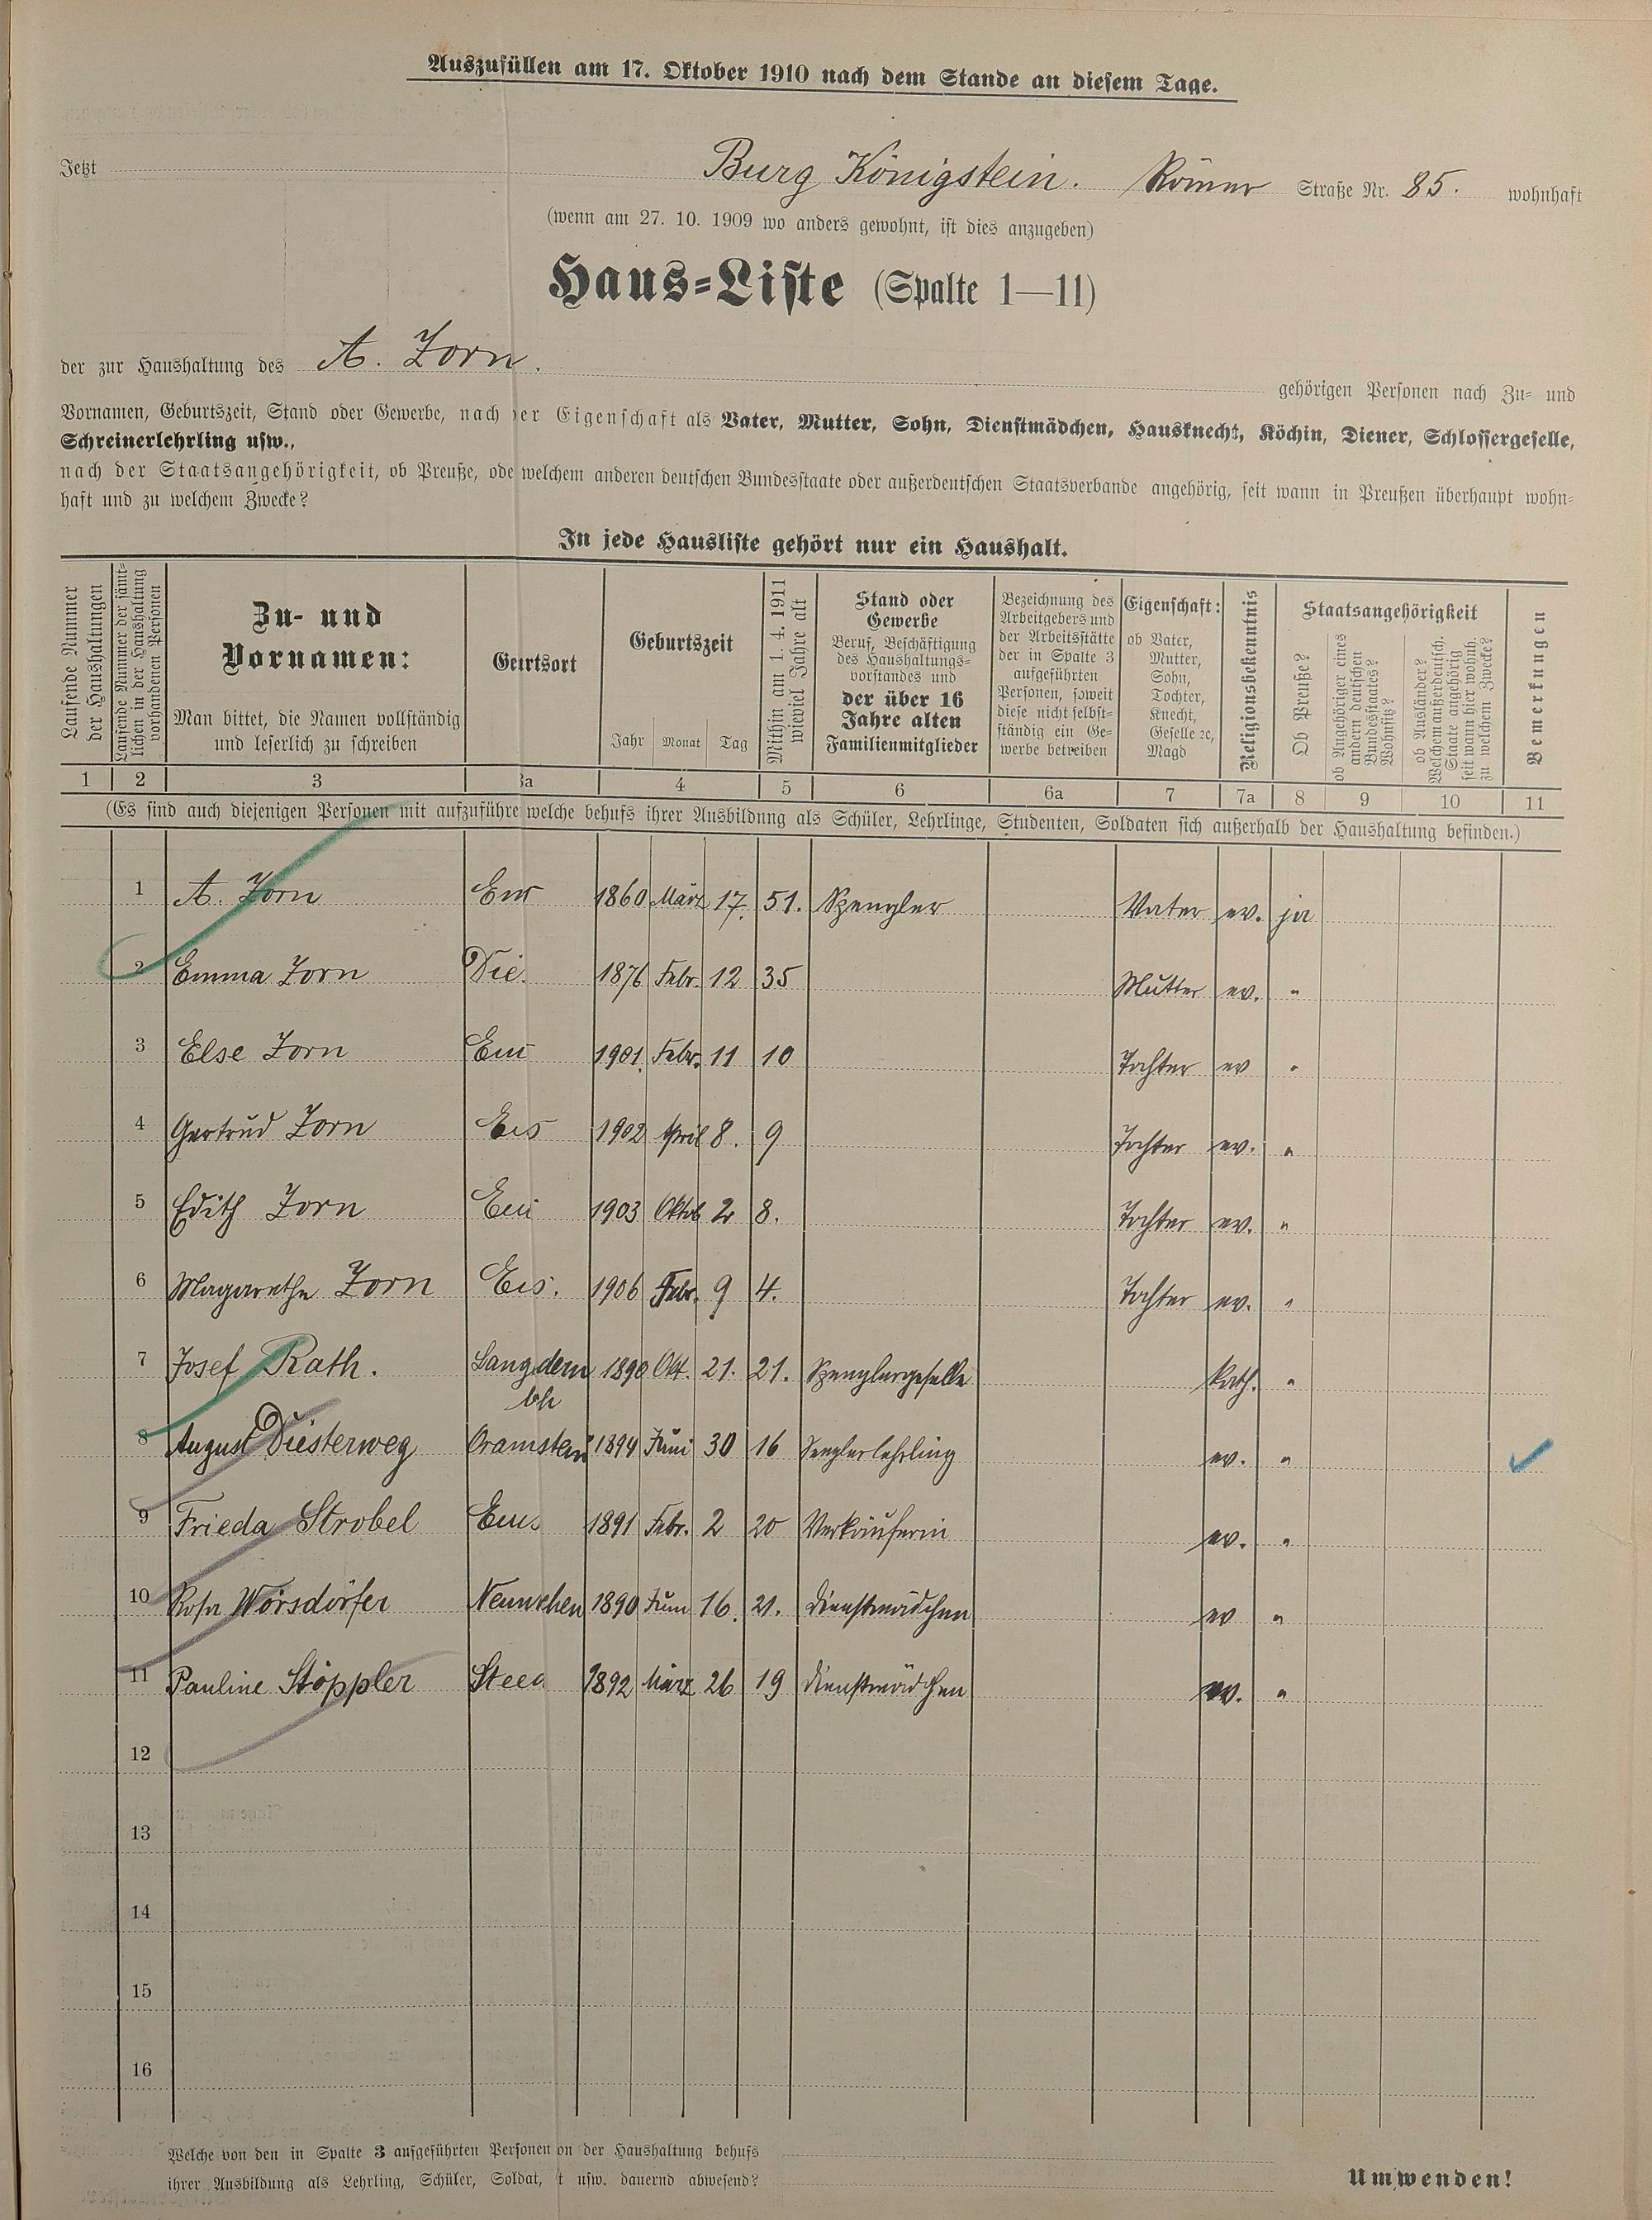 Auszufüllen am 17. Oktober 1910 nach dem Stande an diesem Tage.
Jetzt Burg Königstein. Römer Straße Nr. 85. wohnhaft
(wenn am 27. 10. 1909 wo anders gewohnt, ist dies anzugeben)
Haus-Liste (Spalte 1—11)
der zur Haushaltung des A. Zorn. gehörigen Personen nach Zu- und
Vornamen, Geburtszeit, Stand oder Gewerbe, nach der Eigenschaft als Vater, Mutter, Sohn, Dienstmädchen, Hausknecht, Köchin, Diener, Schlossergeselle,
Schreinerlehrling usw.,
nach der Staatsangehörigkeit, ob Preuße, ode welchem anderen deutschen Bundesstaate oder außerdeutschen Staatsverbande angehörig, seit wann in Preußen überhaupt wohn-
haft und zu welchem Zwecke?
In jede Hausliste gehört nur ein Haushalt.
Laufende Nummer
der Haushaltungen
Laufende Nummer der sämt-
lichen in der Haushaltung
vorhandenen Personen
Zu- und
Vornamen:
Man bittet, die Namen vollständig
und leserlich zu schreiben
Geurtsort
Geburtszeit
Jahr Monat Tag
Mithin am 1. 4. 1911
wieviel Jahre alt
Stand oder
Gewerbe
Beruf, Beschäftigung
des Haushaltungs-
vorstandes und
der über 16
Jahre alten
Familienmitglieder
Bezeichnung des
Arbeitgebers und
der Arbeitsstätte
der in Spalte 3
aufgeführten
Personen, soweit
diese nicht selbst-
ständig ein Ge-
werbe betreiben
Eigenschaft:
ob Vater,
Mutter,
Sohn,
Tochter,
Knecht,
Geselle 2c,
Magd
Religionsbekenntnis
Staatsangehörigkeit
Ob Preuße?
ob Angehöriger eines
andern deutschen
Bundesstaates?
Wohnsitz?
ob Ausländer?
Welchem außerdeutsch.
Staate angehörig
seit wann hier wohnh.
zu welchem Zwecke?
Bemerkungen
1 2 3 3a 4 5 6 6a 7 7a 8 9 10 11
(Es sind auch diejenigen Personen mit aufzuführe welche behufs ihrer Ausbildung als Schüler, Lehrlinge, Studenten, Soldaten sich außerhalb der Haushaltung befinden.)
1 A. Zorn 1860 März 17. 51. Spengler Vater ev. ja
2 Emma Zorn Die. 1876 Febr. 12 35 Mutter ev. "
3 Else Zorn 1901. Febr. 11 10 Tochter ev "
4 Gertrud Zorn 1902 April 8. 9 Tochter ev. "
5 Edith Zorn 1903 Oktob 2 8. Tochter ev. "
6 Magarethe Zorn 1906 Febr. 9 4. Tochter ev. "
7 Josef Rath. 1890 Okt. 21. 21. Spenglergeselle kath. "
8 August Diesterweg 1894 Juni 30 16 ev. "
9 Frieda Strobel Ems 1891 Febr. 2 20 Verkäuferin ev. "
10 Rosa Wörsdörfer 1890 Juni 16. 21. Dienstmädchen ev "
11 Pauline Stöppler 1892 März 26 19 Dienstmädchen ev. "
12
13
14
15
16
Welche von den in Spalte 3 aufgeführten Personen on der Haushaltung behufs
ihrer Ausbildung als Lehrling, Schüler, Soldat, t usw. dauernd abwesend?
Umwenden!